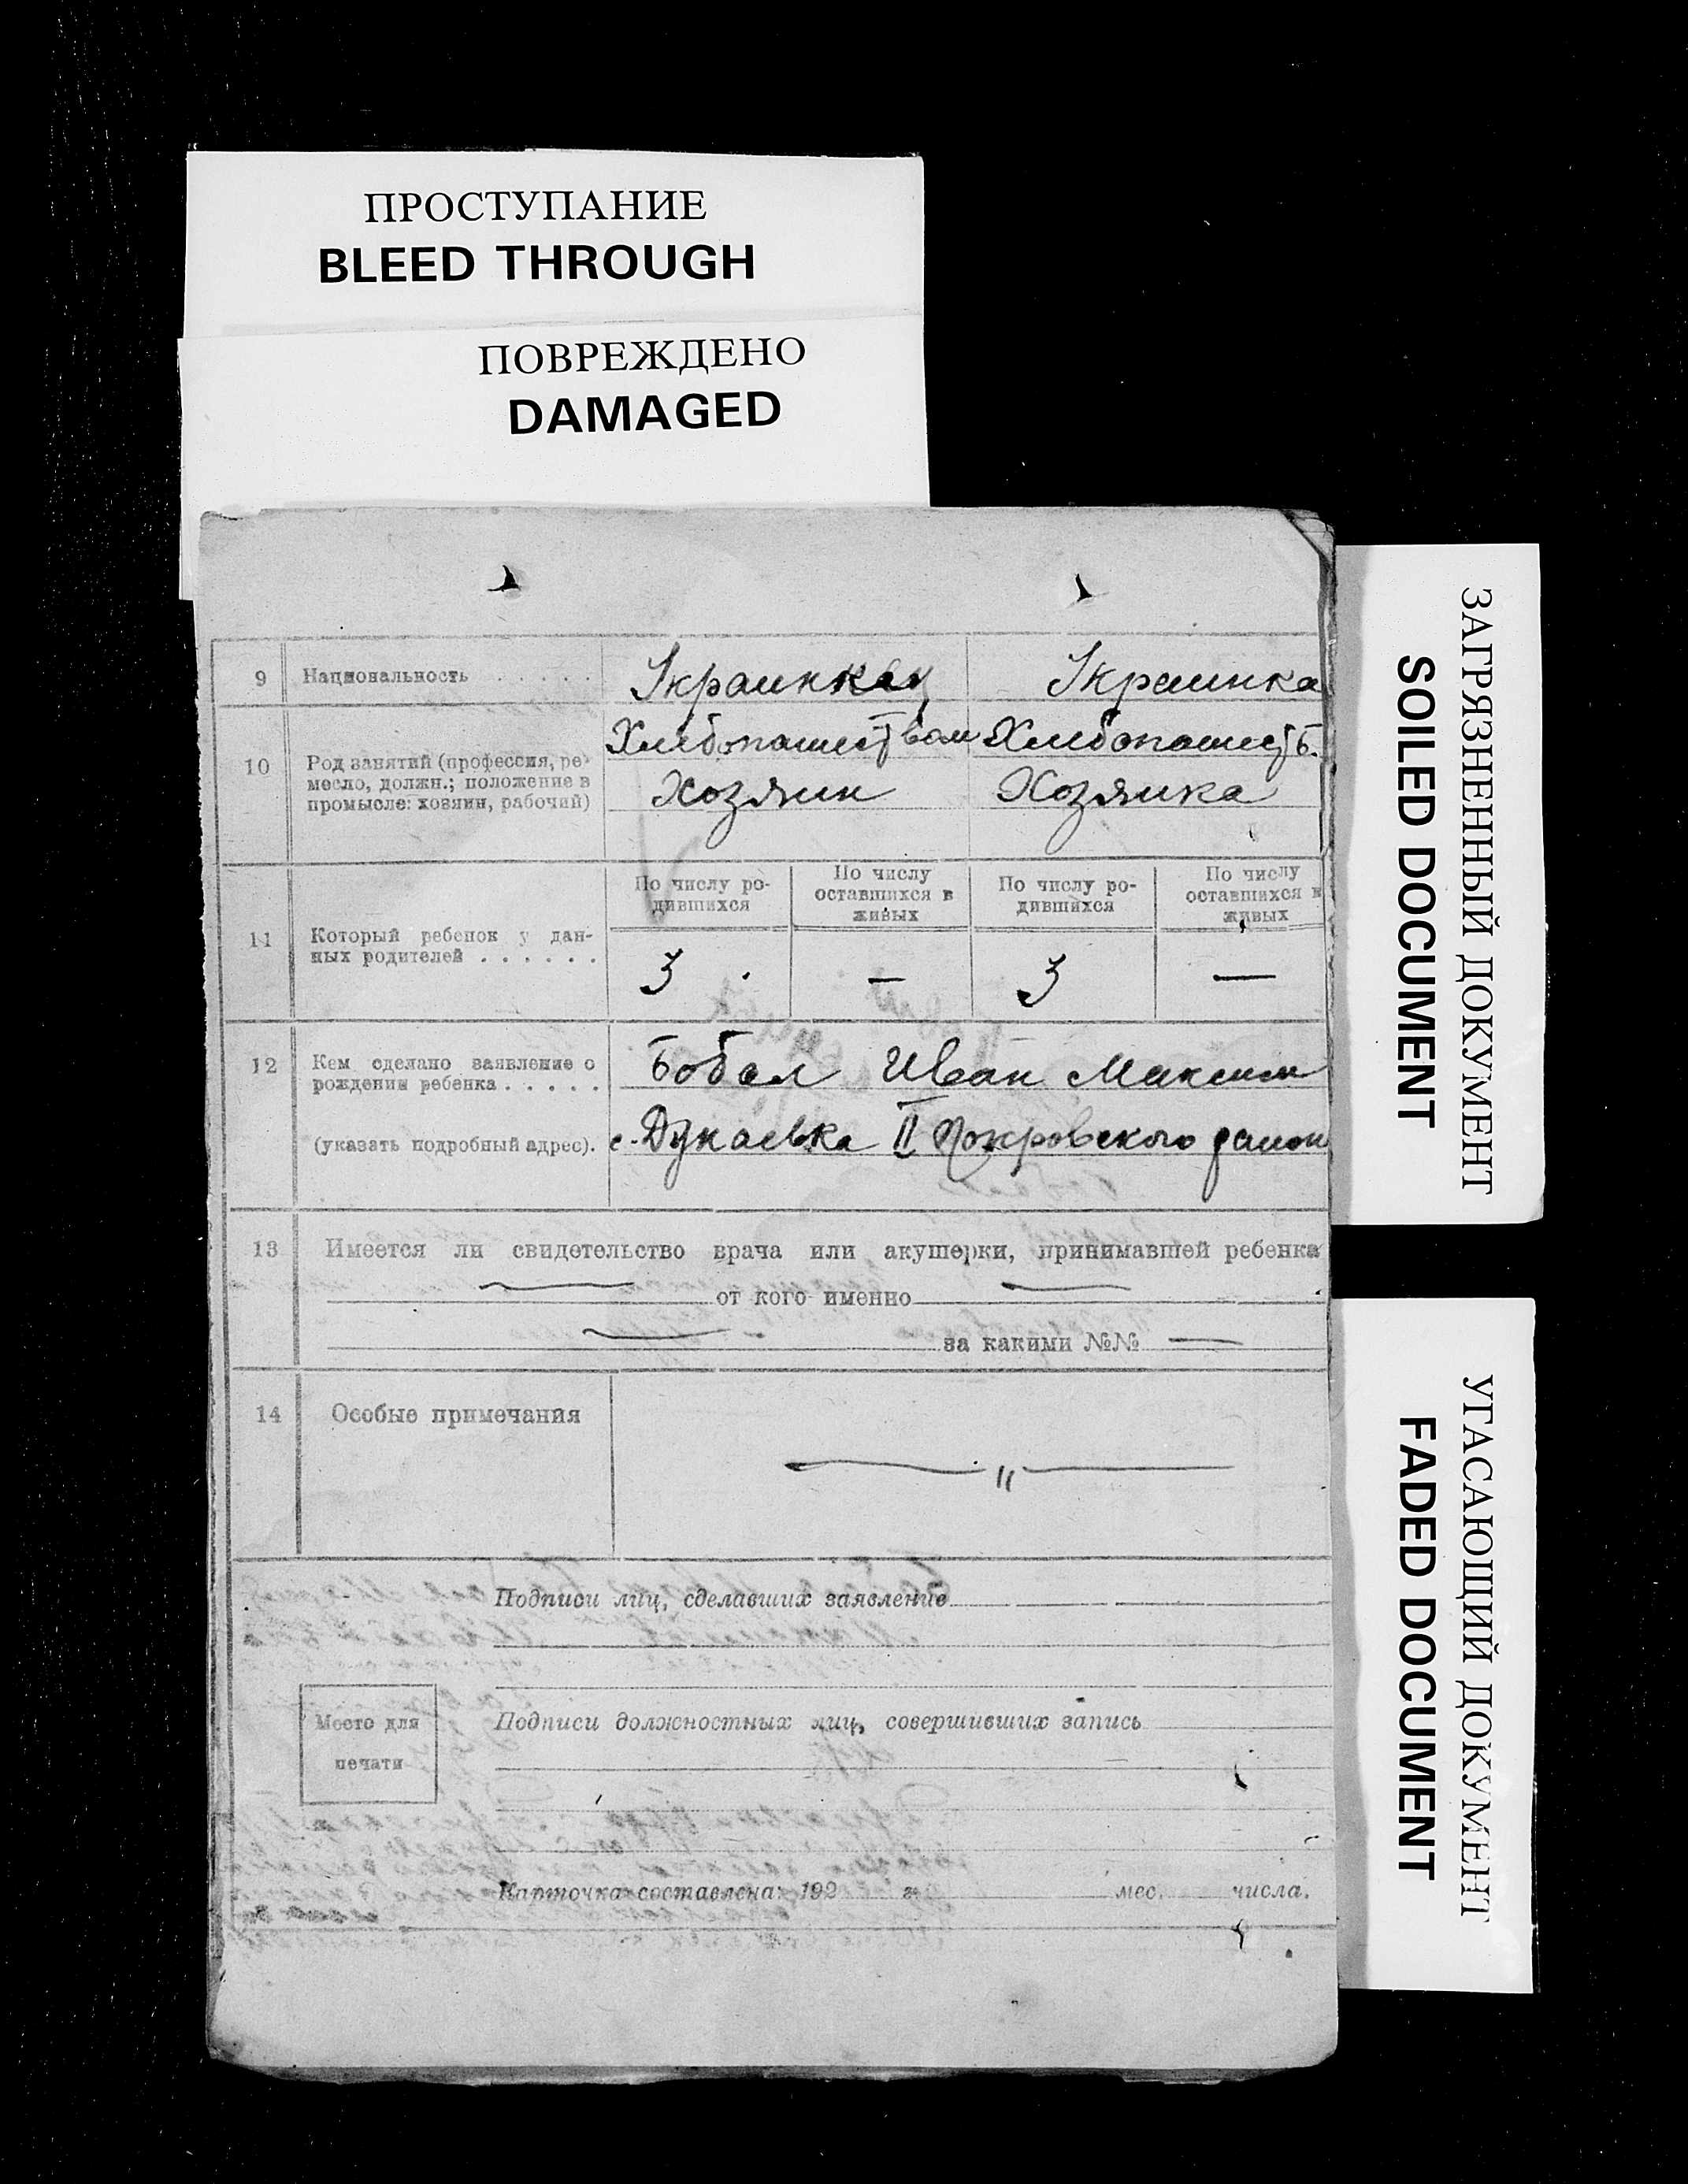 ПРОСТУПАНИЕ
BLEED THROUGH
ПОВРЕЖДЕНО
DAMAGED
ЗАГРЯЗНЕННЫЙ ДОКУМЕНТ
SOILED DOCUMENT
УГАСАЮЩИЙ ДОКУМЕНТ
FADED DOCUMENT
9 Национальность . . . . . Украинец Украинка
10 Род занятий (профессия, ре-
месло, должн.; положение в
промысле: хозяин, рабочий)
Хлебопашеством Хлебопашеств.
Хозяин Хозяика
11 Который ребенок у дан-
ных родителей . . . . . .
По числу ро-
дившихся
По числу
оставшихся в
живых
По числу ро-
дившихся
По числу
оставшихся в
живых
3 — 3 —
12 Кем сделано заявление о
рождении ребенка . . . . .
Бобал Иван Максим
(указать подробный адрес).
с. Дунаевка II Покровского район
13 Имеется ли свидетельство врача или акушерки, принимавшей ребенка
— от кого именно —
— за какими №№ —
14 Особые примечания — " —
Подписи лиц, сделавших заявление
Место для
печати
Подписи должностных лиц, совершивших запись
Карточка составлена: 192 г. мес. числа.